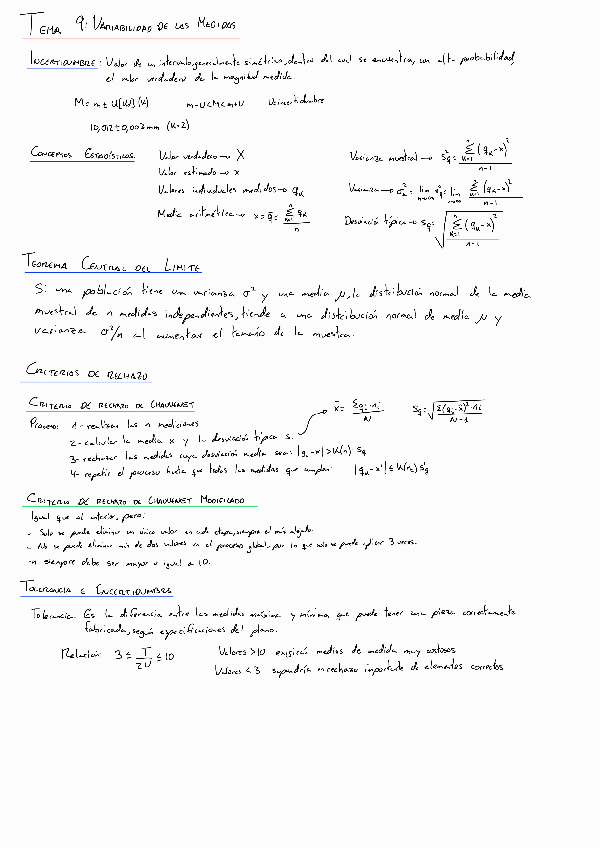 TEMA 9: VARIABILIDAD DE LAS MEDIDAS
INCERTIDUMBRE: Valor de un intervalo, generalmente simétrico, dentro del cual se encuentra, con alta probabilidad,
el valor verdadero de la magnitud medida.
M = m ± U[U](k) m-U<M<m+U U: incertidumbre
10,012 ± 0,003 mm (k=2)
CONCEPTOS ESTADÍSTICOS. Valor verdadero → X
Valor estimado → x
Valores individuales medidos → qₖ
Media aritmética → x = q̄ = Σₖ₌₁ⁿ qₖ / n
Varianza muestral → s²q = Σₖ₌₁ⁿ (qₖ-x)² / n-1
Varianza → σ²q = lim n→∞ s²q = lim n→∞ Σₖ₌₁ⁿ (qₖ-x)² / n-1
Desviació típica → sq = √(Σₖ₌₁ⁿ (qₖ-x)² / n-1)
TEOREMA CENTRAL DEL LIMITE
Si una población tiene una varianza σ² y una media μ, la distribución normal de la media
muestral de n medidas independientes, tiende a una distribución normal de media μ y
varianza σ²/n al aumentar el tamaño de la muestra.
CRITERIOS DE RECHAZO
CRITERIO DE RECHAZO DE CHAUVENET
x̄ = Σqi·ni / N sq = √(Σ(qi-x̄)²·ni / N-1)
Proceso: 1- realizar las n mediciones
2- calcular la media x y la desviación típica s.
3- rechazar las medidas cuya desviación media sea: |qₖ-x| > k(n) sq
4- repetir el proceso hasta que todas las medidas que cumplan: |qₖ-x'| ≤ k(n) s'q
CRITERIO DE RECHAZO DE CHAUVENET MODIFICADO
Igual que el anterior, pero:
- Solo se puede eliminar un único valor en cada etapa, siempre el más alejado.
- No se puede eliminar más de dos valores en el proceso global, por lo que solo se puede aplicar 3 veces.
- n siempre debe ser mayor o igual a 10.
TOLERANCIA E INCERTIDUMBRE
Tolerancia: Es la diferencia entre las medidas máxima y mínima que puede tener una pieza correctamente
fabricada, según especificaciones del plano.
Relación 3 ≤ T/2U ≤ 10 Valores >10 exigirá medios de medida muy costosos
Valores <3 supondría un rechazo importante de elementos correctos